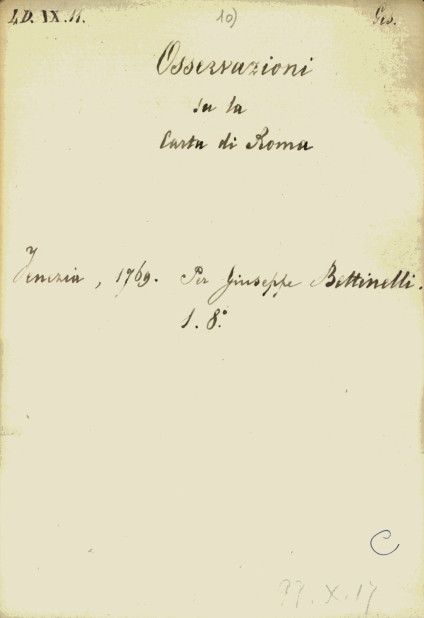 I.D. IX. 11.
10)
Ges.
Osservazioni
su la
Carta di Roma
Venezia, 1769. Per Giuseppe Bettinelli.
1. 8.°
C